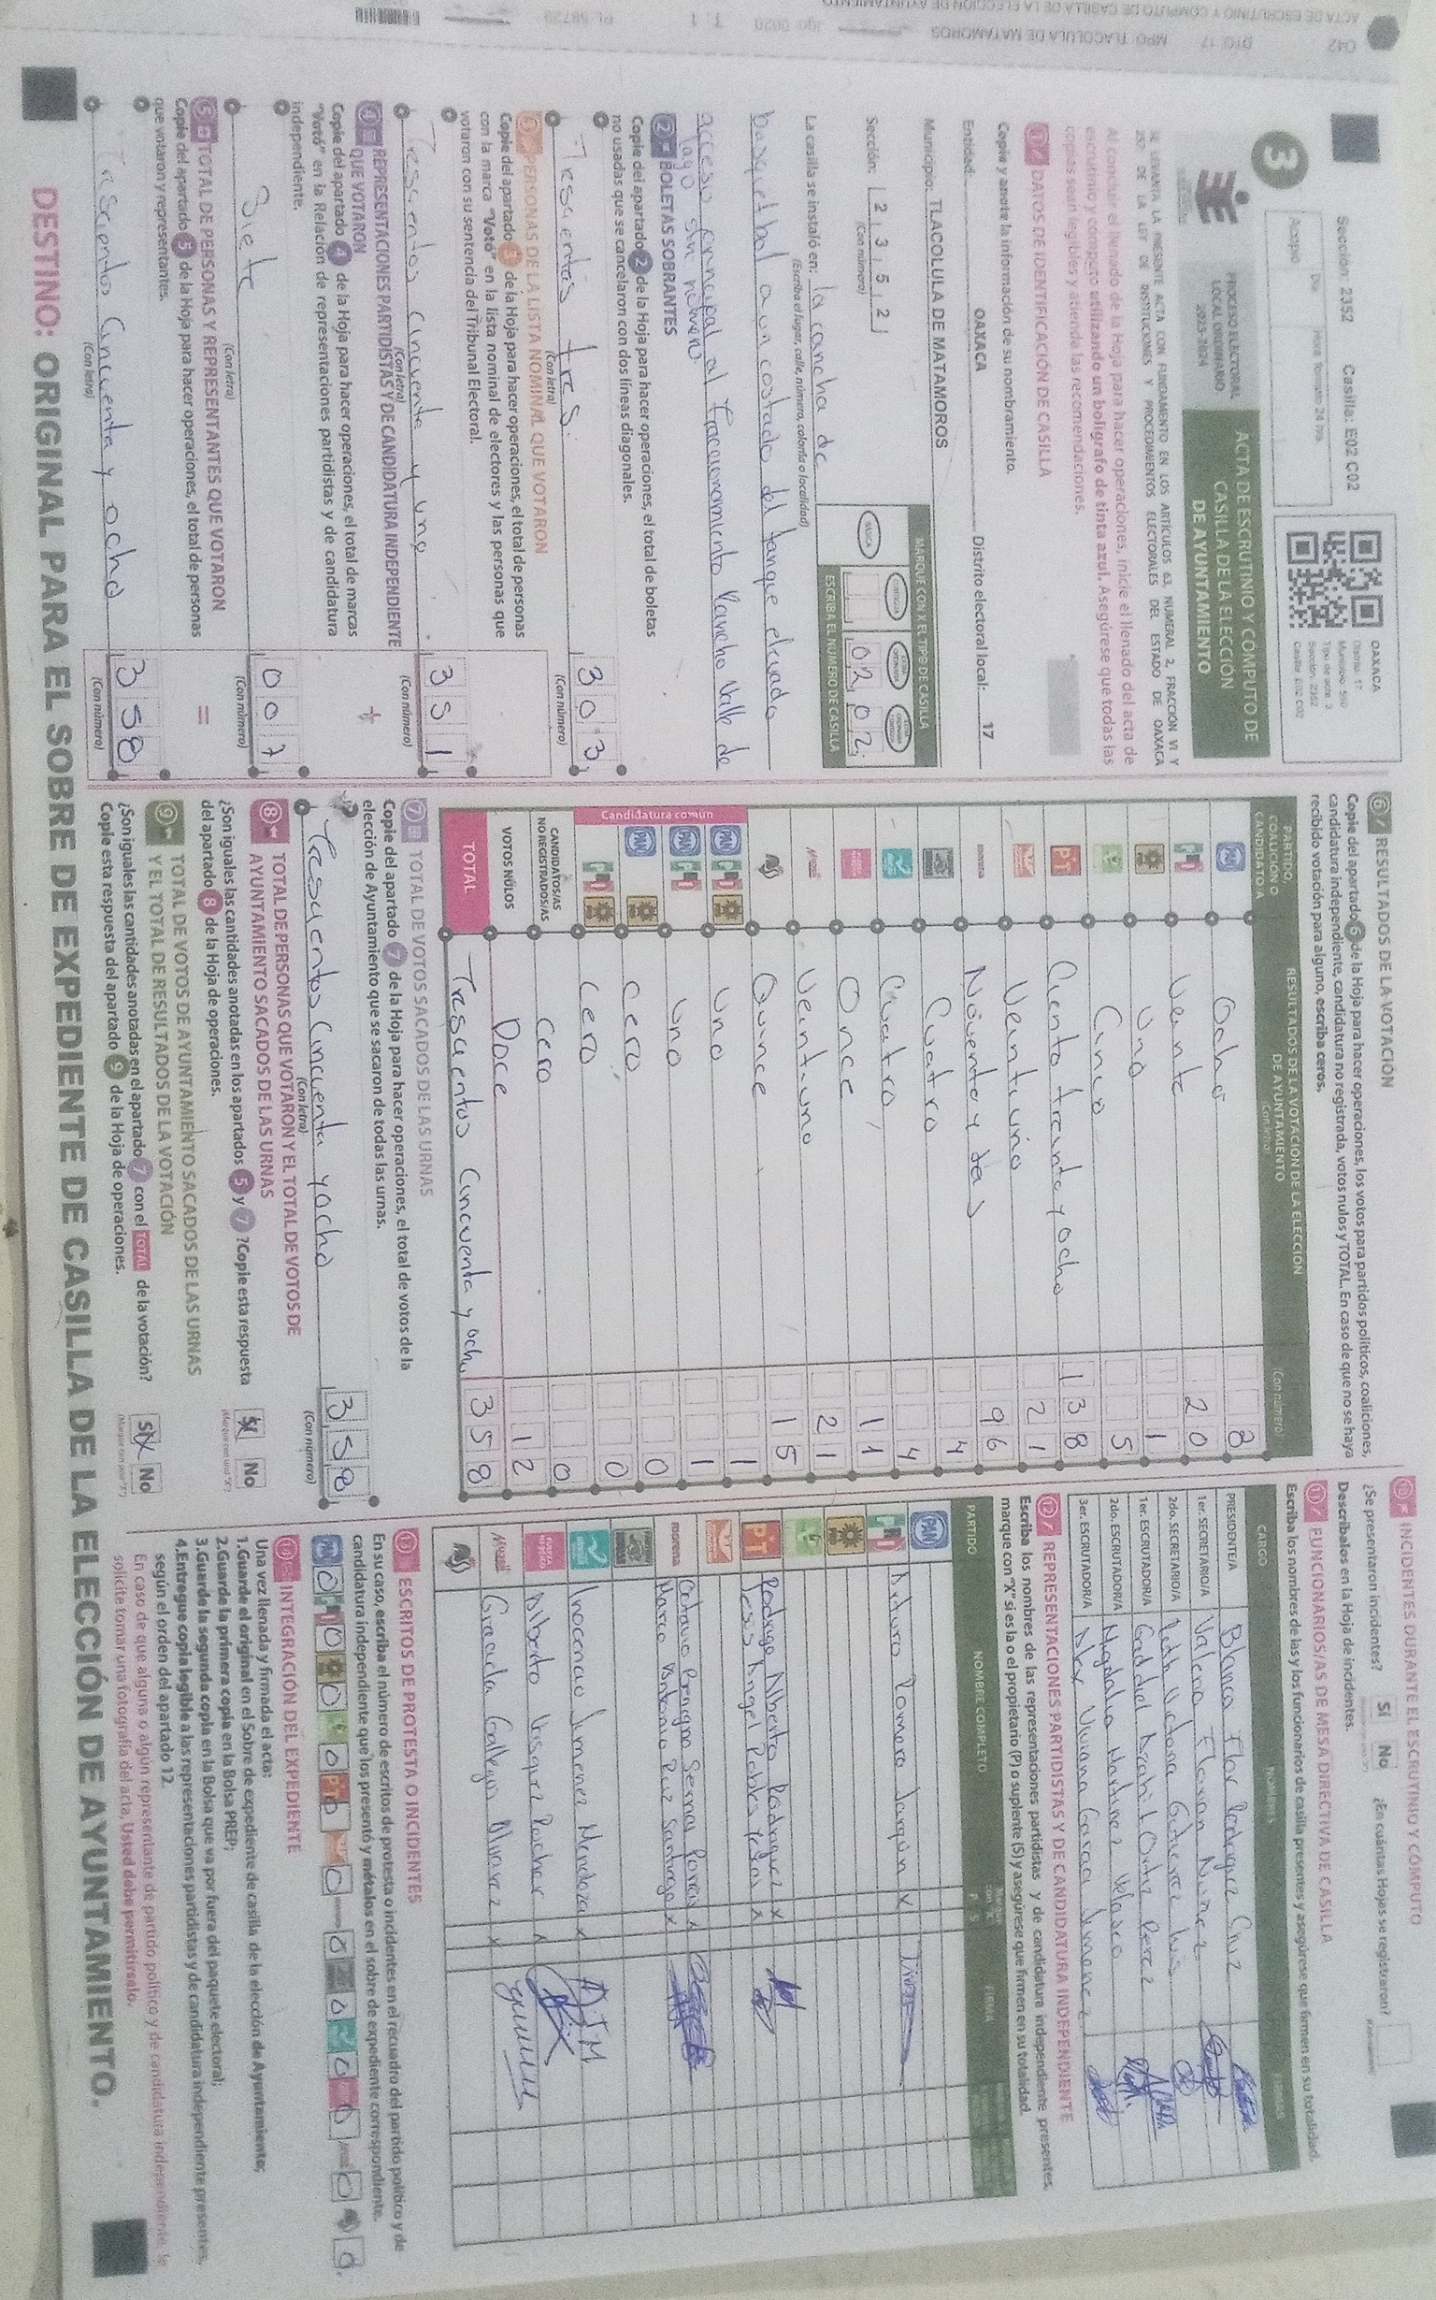 Sección: 2352 Casilla: E02 C02
Acopio
OAXACA
Distrito: 17
Tipo de acta: 3
Sección: 2352
Casilla: E02 C02
3
PROCESO ELECTORAL
LOCAL ORDINARIO
2023-2024
ACTA DE ESCRUTINIO Y CÓMPUTO DE
CASILLA DE LA ELECCIÓN
DE AYUNTAMIENTO
SE LEVANTA LA PRESENTE ACTA CON FUNDAMENTO EN LOS ARTÍCULOS 63, NUMERAL 2, FRACCIÓN VI Y
257 DE LA LEY DE INSTITUCIONES Y PROCEDIMIENTOS ELECTORALES DEL ESTADO DE OAXACA
Al concluir el llenado de la Hoja para hacer operaciones, inicie el llenado del acta de
escrutinio y cómputo utilizando un bolígrafo de tinta azul. Asegúrese que todas las
copias sean legibles y atienda las recomendaciones.
1 DATOS DE IDENTIFICACIÓN DE CASILLA
Copie y anote la información de su nombramiento.
Entidad: OAXACA Distrito electoral local: 17
Municipio: TLACOLULA DE MATAMOROS
Sección: 2 3 5 2
(Con número)
MARQUE CON X EL TIPO DE CASILLA
BÁSICA
0 2 0 2
ESCRIBA EL NÚMERO DE CASILLA
La casilla se instaló en: la cancha de
(Escriba el lugar, calle, número, colonia o localidad)
basquetbal a un costado del tanque elevado
acceso principal al fraccionamiento Rancho Valle de
lago sin número
2 BOLETAS SOBRANTES
Copie del apartado 2 de la Hoja para hacer operaciones, el total de boletas
no usadas que se cancelaron con dos líneas diagonales.
Trescientos tres. 3 0 3
(Con letra) (Con número)
3 PERSONAS DE LA LISTA NOMINAL QUE VOTARON
Copie del apartado 3 de la Hoja para hacer operaciones, el total de personas
con la marca "Votó" en la lista nominal de electores y las personas que
votaron con su sentencia del Tribunal Electoral.
Trescientos cincuenta y uno 3 5 1
(Con letra) (Con número)
4 REPRESENTACIONES PARTIDISTAS Y DE CANDIDATURA INDEPENDIENTE
QUE VOTARON
+
Copie del apartado 4 de la Hoja para hacer operaciones, el total de marcas
"Votó" en la Relación de representaciones partidistas y de candidatura
independiente.
Siete 0 0 7
(Con letra) (Con número)
5 TOTAL DE PERSONAS Y REPRESENTANTES QUE VOTARON
=
Copie del apartado 5 de la Hoja para hacer operaciones, el total de personas
que votaron y representantes.
Trescientos Cincuenta y ocho 3 5 8
(Con letra) (Con número)
6 RESULTADOS DE LA VOTACIÓN
Copie del apartado 6 de la Hoja para hacer operaciones, los votos para partidos políticos, coaliciones,
candidatura independiente, candidatura no registrada, votos nulos y TOTAL. En caso de que no se haya
recibido votación para alguno, escriba ceros.
PARTIDO, COALICIÓN O CANDIDATO/A
RESULTADOS DE LA VOTACIÓN DE LA ELECCIÓN DE AYUNTAMIENTO
(Con letra) (Con número)
PAN Ocho 8
PRI Veinte 20
PRD Uno 1
Cinco 5
PT Ciento treinta y ocho 138
Veintiuno 21
morena Noventa y seis 96
Cuatro 4
Cuatro 4
Once 11
Veintiuno 21
Quince 15
Candidatura común
PAN PRI PRD Uno 1
PAN PRI Uno 1
PAN PRD Cero 0
PRI PRD Cero 0
CANDIDATOS/AS NO REGISTRADOS/AS Cero 0
VOTOS NULOS Doce 12
TOTAL Trescientos Cincuenta y ocho 358
7 TOTAL DE VOTOS SACADOS DE LAS URNAS
Copie del apartado 7 de la Hoja para hacer operaciones, el total de votos de la
elección de Ayuntamiento que se sacaron de todas las urnas.
Trescientos Cincuenta y ocho 3 5 8
(Con letra) (Con número)
8 TOTAL DE PERSONAS QUE VOTARON Y EL TOTAL DE VOTOS DE
AYUNTAMIENTO SACADOS DE LAS URNAS
¿Son iguales las cantidades anotadas en los apartados 5 y 7 ? Copie esta respuesta
del apartado 8 de la Hoja de operaciones.
Sí No
9 TOTAL DE VOTOS DE AYUNTAMIENTO SACADOS DE LAS URNAS
Y EL TOTAL DE RESULTADOS DE LA VOTACIÓN
¿Son iguales las cantidades anotadas en el apartado 7 con el TOTAL de la votación?
Copie esta respuesta del apartado 9 de la Hoja de operaciones.
Sí No
10 INCIDENTES DURANTE EL ESCRUTINIO Y CÓMPUTO
¿Se presentaron incidentes? Sí No ¿En cuántas Hojas se registraron?
Descríbalos en la Hoja de incidentes.
11 FUNCIONARIOS/AS DE MESA DIRECTIVA DE CASILLA
Escriba los nombres de las y los funcionarios de casilla presentes y asegúrese que firmen en su totalidad.
CARGO NOMBRES FIRMAS
PRESIDENTE/A Blanca Flor Rodriguez Cruz
1er. SECRETARIO/A Valeria Nuñez
2do. SECRETARIO/A Victoria Gutierrez
1er. ESCRUTADOR/A Ortiz Perez
2do. ESCRUTADOR/A Magdalena Martinez Velasco
3er. ESCRUTADOR/A Alex Viviana Garcia Jimenez
12 REPRESENTACIONES PARTIDISTAS Y DE CANDIDATURA INDEPENDIENTE
Escriba los nombres de las representaciones partidistas y de candidatura independiente presentes,
marque con "X" si es la o el propietario (P) o suplente (S) y asegúrese que firmen en su totalidad.
PARTIDO NOMBRE COMPLETO P S FIRMA
PAN
PRI Arturo Romero Jarquin x
PT Rodrigo Alberto Rodriguez x
Jesus Angel Robles x
morena Octavio Benigno Sernas Porras x
Marco Antonio Ruiz Santiago x
Inocencio Jimenez Mendoza x AJM
Alberto Vasquez x
Graciela Gallegos Alvarez x
13 ESCRITOS DE PROTESTA O INCIDENTES
En su caso, escriba el número de escritos de protesta o incidentes en el recuadro del partido político y de
candidatura independiente que los presentó y métalos en el sobre de expediente correspondiente.
14 INTEGRACIÓN DEL EXPEDIENTE
Una vez llenada y firmada el acta:
1.Guarde el original en el Sobre de expediente de casilla de la elección de Ayuntamiento;
2.Guarde la primera copia en la Bolsa PREP;
3.Guarde la segunda copia en la Bolsa que va por fuera del paquete electoral;
4.Entregue copia legible a las representaciones partidistas y de candidatura independiente presentes,
según el orden del apartado 12.
En caso de que alguna o algún representante de partido político y de candidatura independiente, le
solicite tomar una fotografía del acta, Usted debe permitírselo.
DESTINO: ORIGINAL PARA EL SOBRE DE EXPEDIENTE DE CASILLA DE LA ELECCIÓN DE AYUNTAMIENTO.
042 DTO. 17 MPO. TLACOLULA DE MATAMOROS
ACTA DE ESCRUTINIO Y CÓMPUTO DE CASILLA DE LA ELECCIÓN DE AYUNTAMIENTO